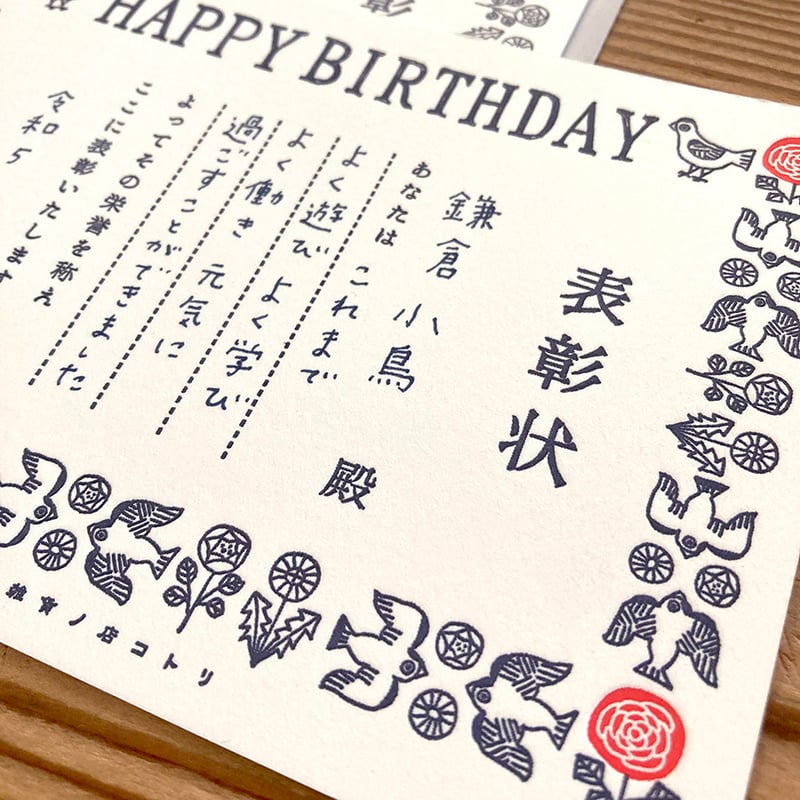 HAPPY BIRTHDAY
表彰状
鎌倉 小鳥 殿
あなたは これまで
よく遊び よく学び
よく働き 元気に
過ごすことができました
よってその栄誉を称え
ここに表彰いたします
令和5
雑貨ノ店コトリ
彰